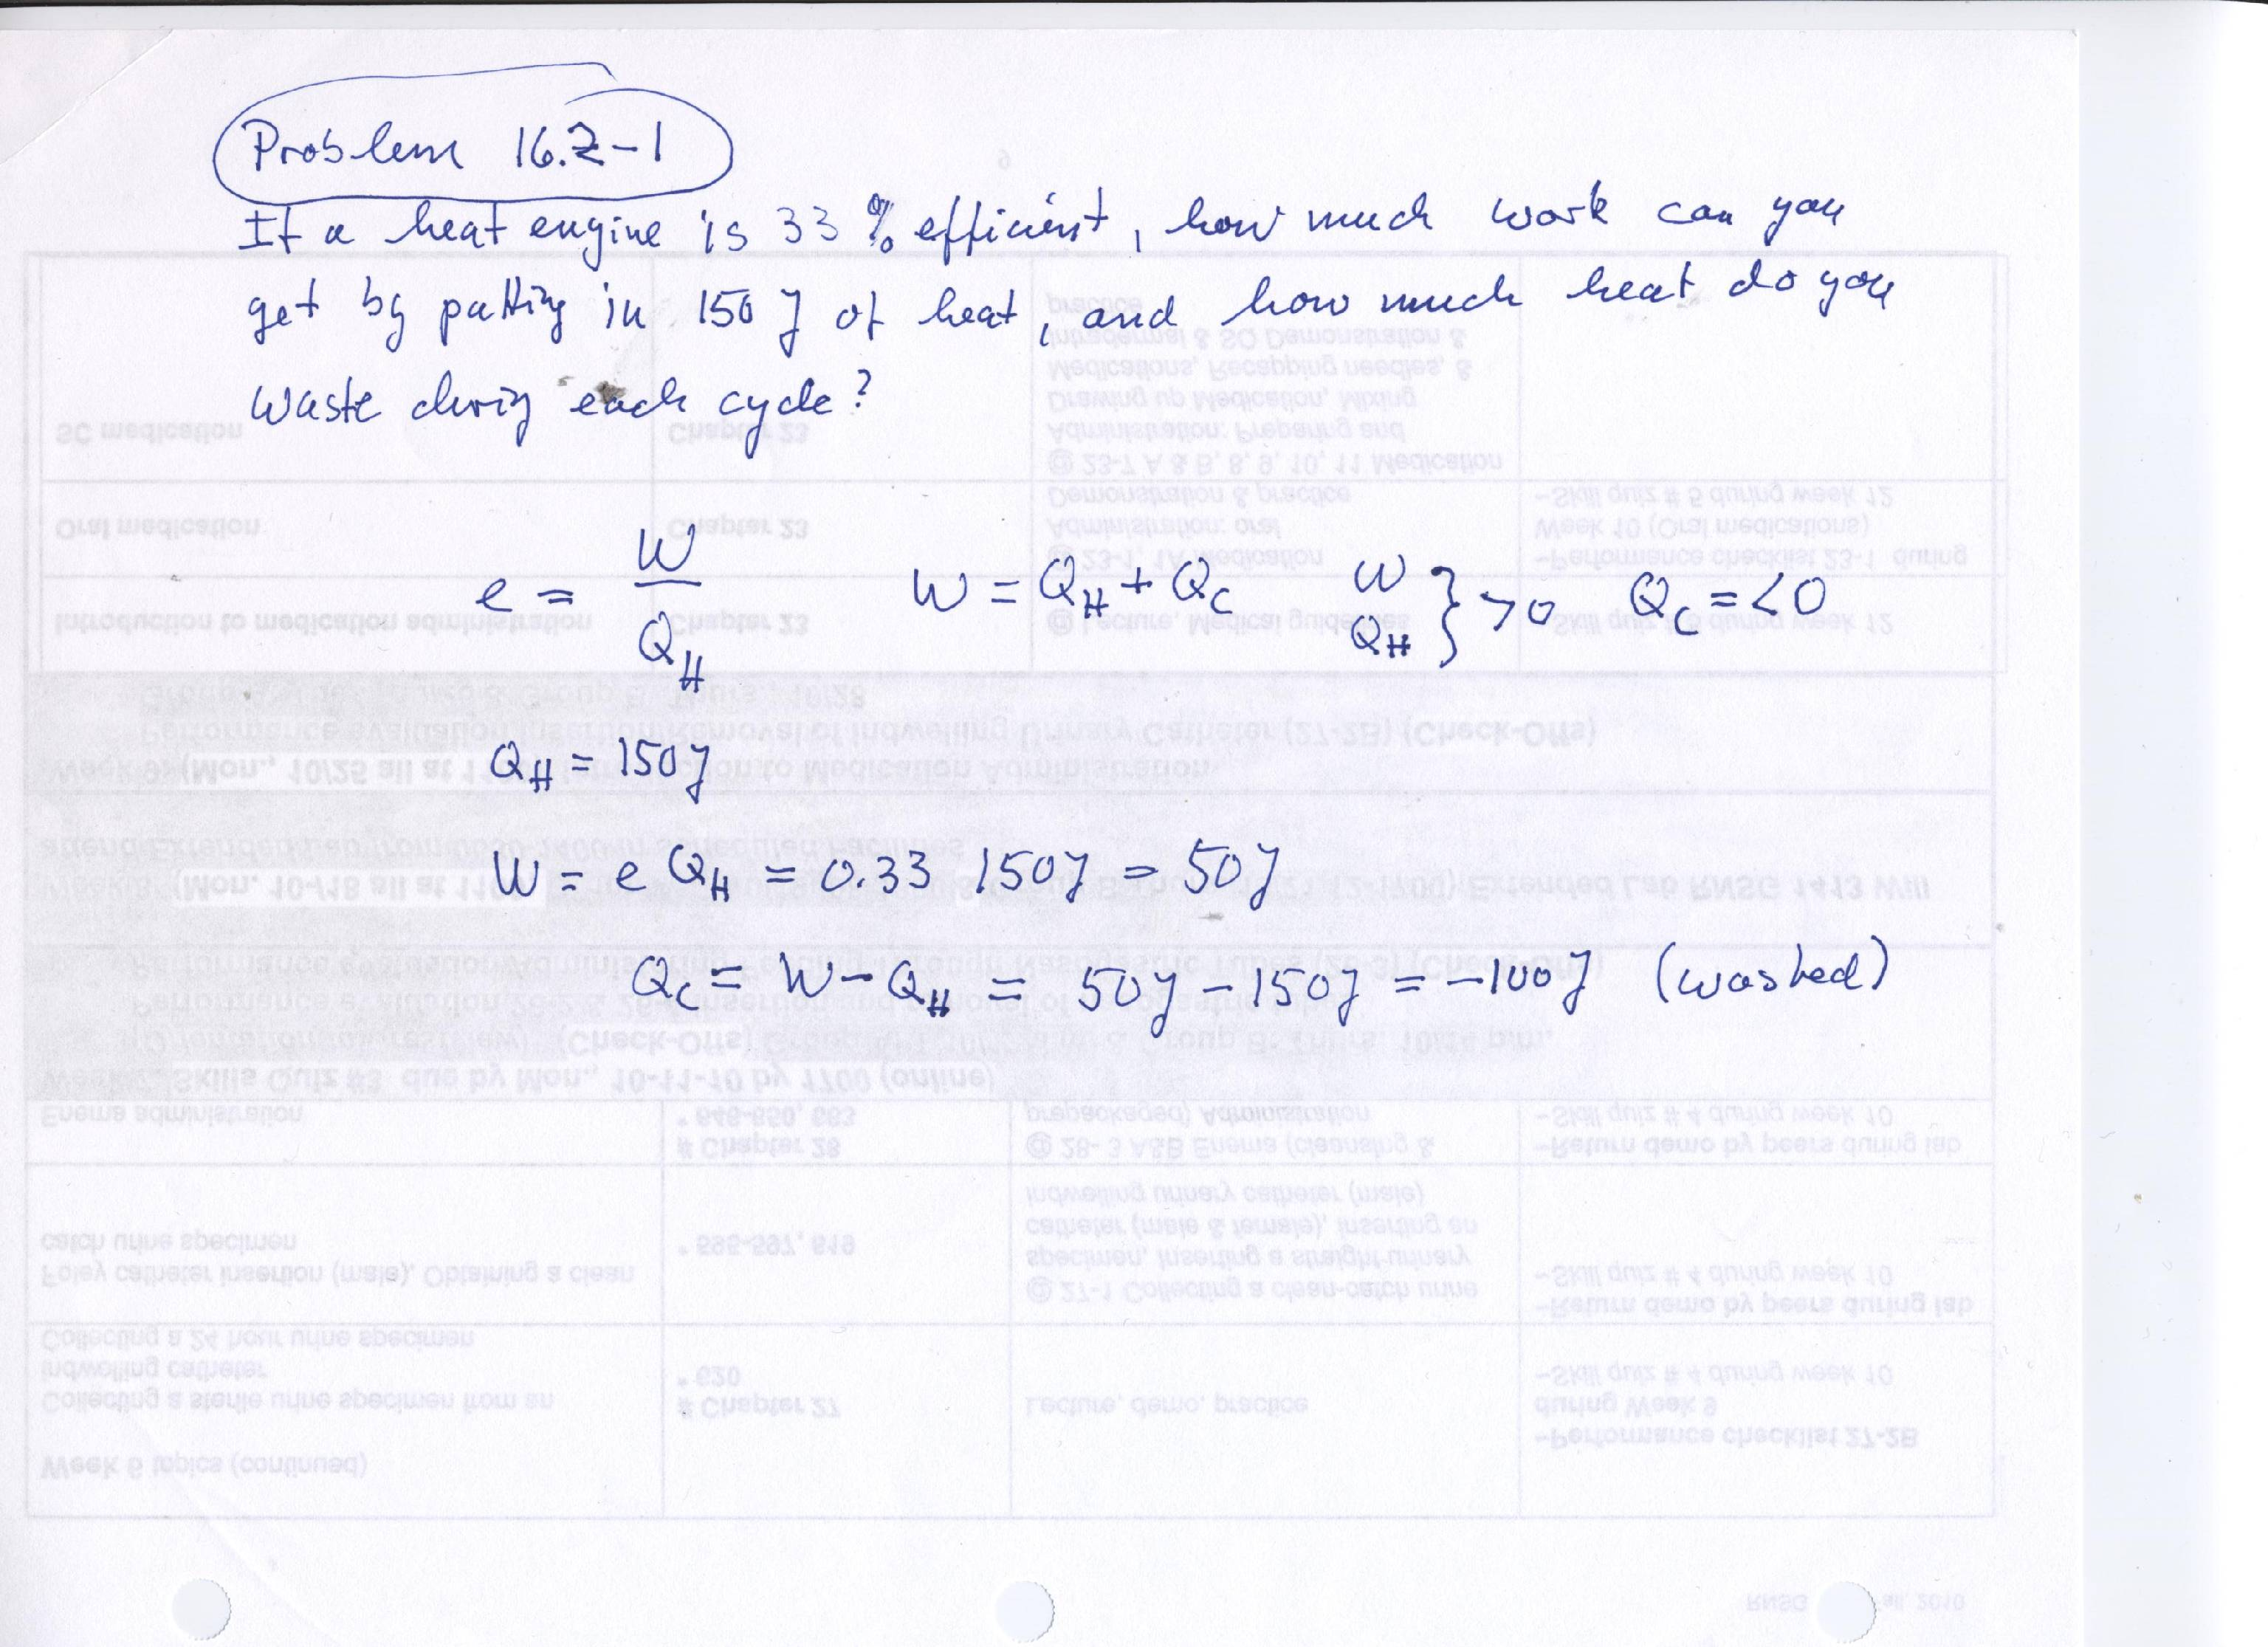 Problem 16.2-1
If a heat engine is 33% efficient, how much work can you
get by putting in 150 J of heat, and how much heat do you
waste during each cycle?
e = W / Q_H    W = Q_H + Q_C    W Q_H } >0    Q_C = <0
Q_H = 150J
W = e Q_H = 0.33 150J = 50J
Q_C = W - Q_H = 50J - 150J = -100J (wasted)